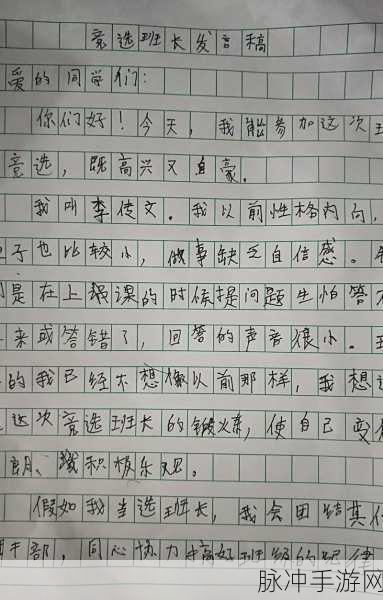 竞选班长发言稿
爱的同学们：
你们好！今天，我能参加这次
竞选，既高兴又自豪。
我叫李传文。我以前性格内向，
子也比较小，做事缺乏自信感。
是在上课的时候提问题生怕答
来或答错了，回答的声音很小。
的我已经不想像以前那样，我想
这次竞选班长的锻炼，使自己变
朗、积极乐观。
假如我当选班长，我会团结其
干部，同心协力搞好班级的纪律
脉冲手游网